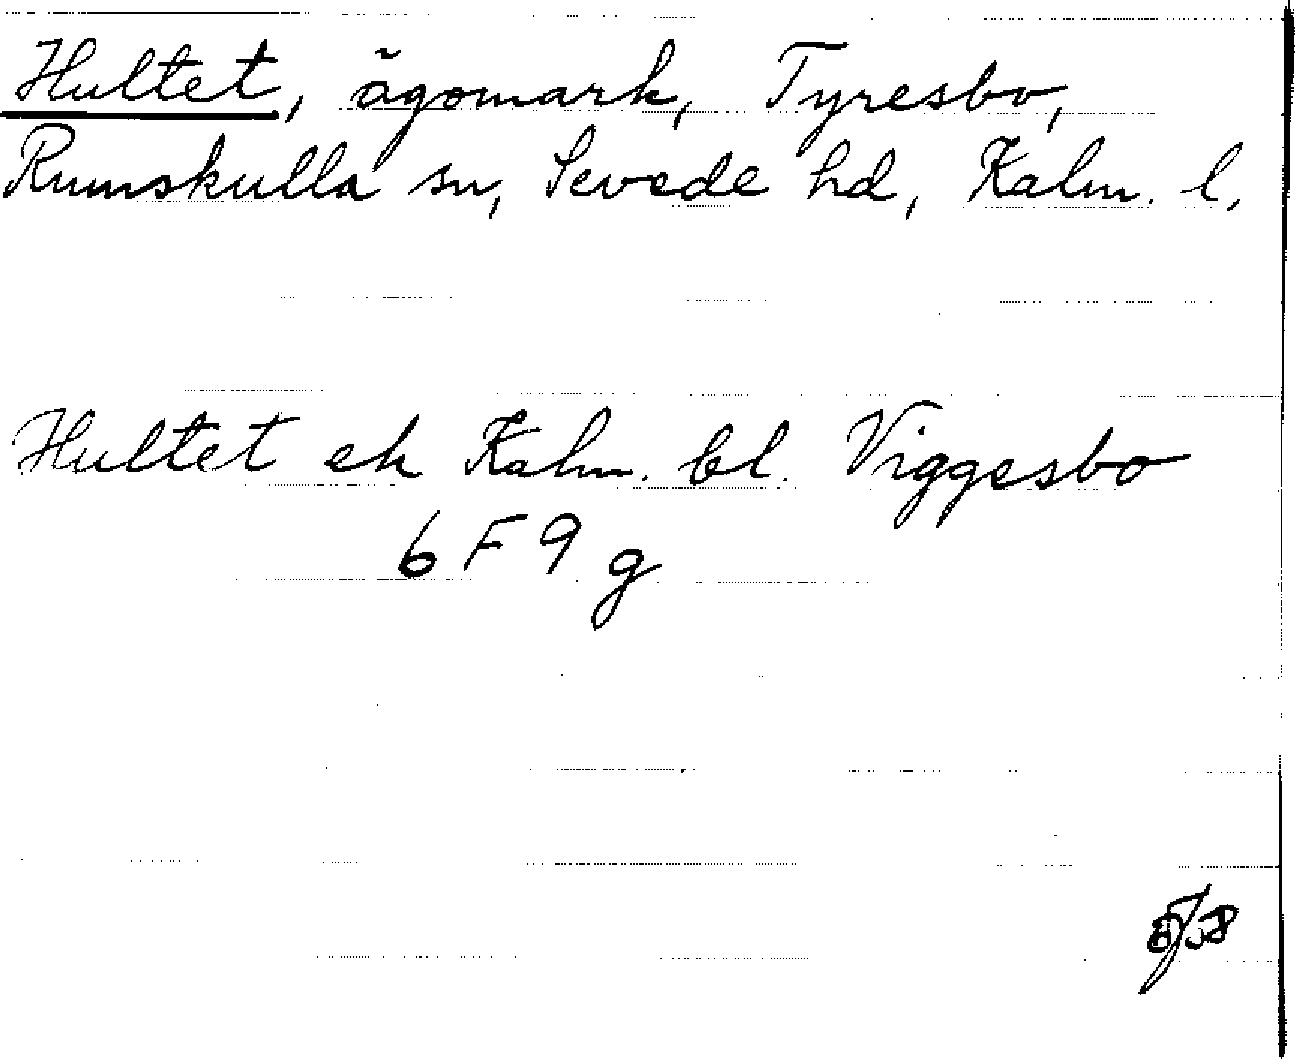 Hultet, ägomark, Tyresbo,
Rumskulla sn, Sevede hd, Kalm. l.
Hultet ek Kalm. bl. Viggesbo
6 F 9 g